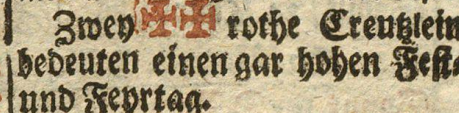 Zwey ✠✠ rothe Creutzlein
bedeuten einen gar hohen Fest-
und Feyrtag.